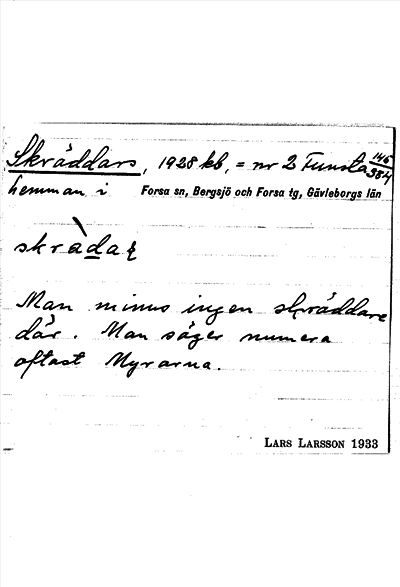 Skräddars, 1928 kb, = nr 2 Funsta 146/384
hemman i Forsa sn, Bergsjö och Forsa tg, Gävleborgs län
Man minns ingen skräddare
där. Man säger numera
oftast Myrarna.
LARS LARSSON 1933